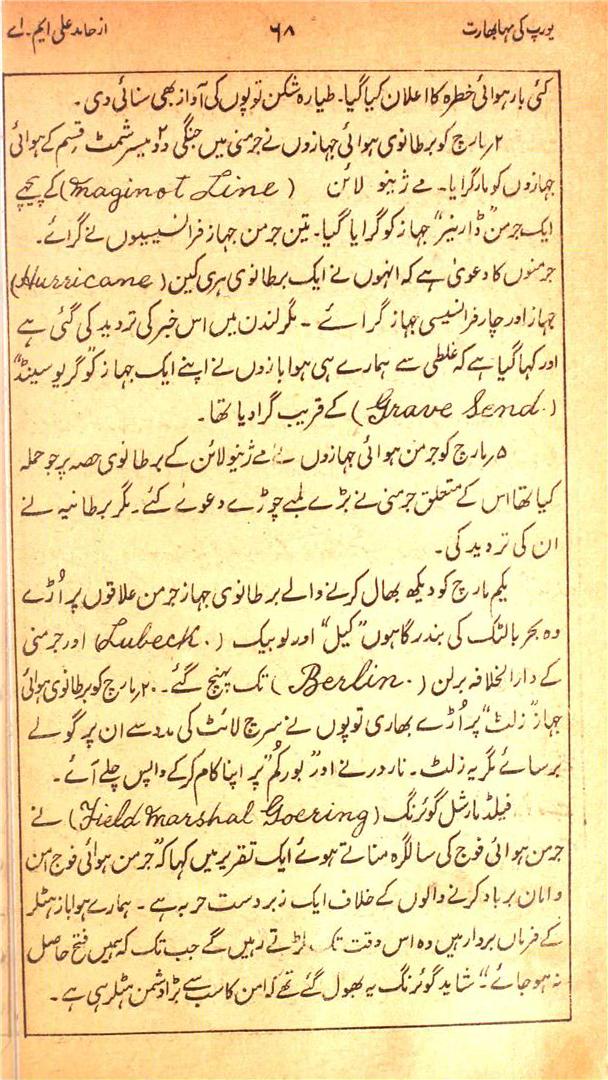 یورپ کی مہابھارت ۶۸ از حامد علی ایم۔ اے
کئی بار ہوائی خطرہ کا اعلان کیا گیا۔ طیارہ شکن توپوں کی آواز بھی سنائی دی۔
۲؍مارچ کو برطانوی ہوائی جہازوں نے جرمنی میں جنگی دو میسر شمٹ قسم کے ہوائی
جہازوں کو مار گرایا۔ مے ژینو لائن (Maginot Line) کے پیچھے
ایک جرمن "ڈارنیر" جہاز کو گرایا گیا۔ تین جرمن جہاز فرانسیسیوں نے گرائے۔
جرمنوں کا دعویٰ ہے کہ انہوں نے ایک برطانوی ہری کین (Hurricane)
جہاز اور چار فرانسیسی جہاز گرائے ۔ مگر لندن میں اس خبر کی تردید کی گئی ہے
اور کہا گیا ہے کہ غلطی سے ہمارے ہی ہوا بازوں نے اپنے ایک جہاز کو "گریوسینڈ"
(Grave Send.) کے قریب گرا دیا تھا۔
۵؍مارچ کو جرمن ہوائی جہازوں نے مے ژینو لائن کے برطانوی حصہ پر جو حملہ
کیا تھا اس کے متعلق جرمنی نے بڑے لمبے چوڑے دعوے کئے۔ مگر برطانیہ نے
ان کی تردید کی۔
یکم مارچ کو دیکھ بھال کرنے والے برطانوی جہاز جرمن علاقوں پر اُڑے
وہ بحر بالٹک کی بندرگاہوں "کیل" اور لوبیک (Lubeck.) اور جرمنی
کے دارالخلافہ برلن (Berlin.) تک پہنچ گئے۔ ۲۰؍مارچ کو برطانوی ہوائی
جہاز "زلٹ" پر اُڑے بھاری توپوں نے سرچ لائٹ کی مدد سے ان پر گولے
برسائے مگر یہ زلٹ۔ ناردرنے اور "بورکم" پر اپنا کام کرکے واپس چلے آئے۔
فیلڈ مارشل گوئرنگ (Field Marshal Goering) نے
جرمن ہوائی فوج کی سالگرہ مناتے ہوئے ایک تقریر میں کہا کہ "جرمن ہوائی فوج امن
و امان برباد کرنے والوں کے خلاف ایک زبردست حربہ ہے۔ ہمارے ہوا باز ہٹلر
کے فرماں بردار ہیں وہ اس وقت تک لڑتے رہیں گے جب تک کہ ہمیں فتح حاصل
نہ ہو جائے"۔ شاید گوئرنگ یہ بھول گئے تھے کہ امن کا سب سے بڑا دشمن ہٹلر ہی ہے۔